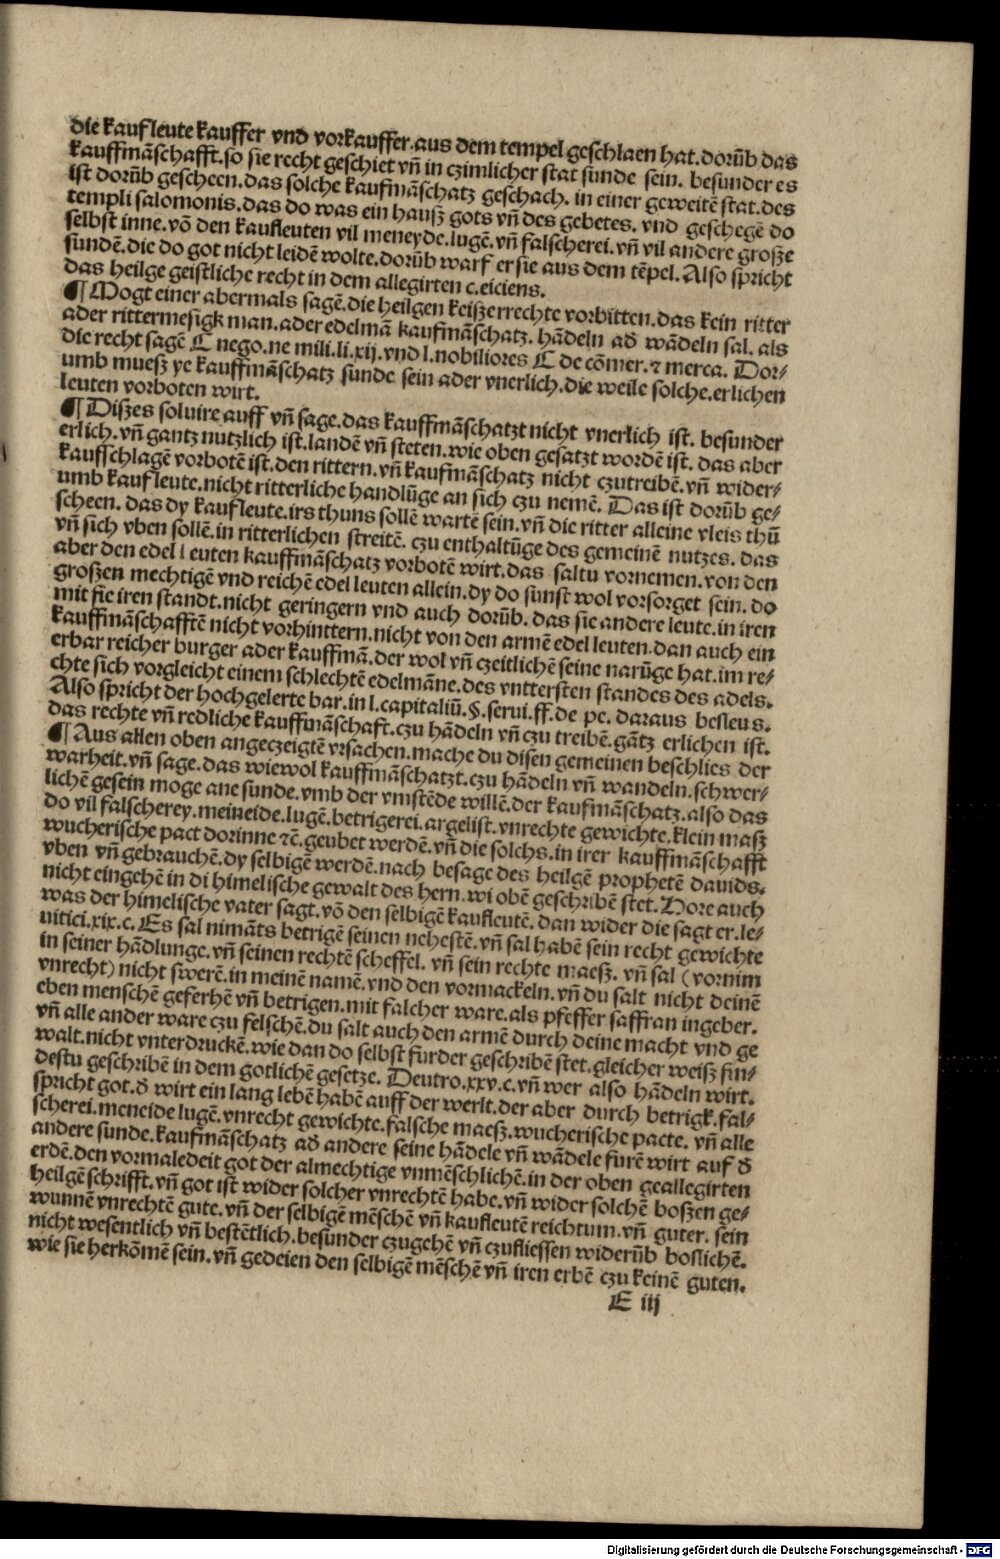 die kaufleute kauffer vnd vorkauffer.aus dem tempel geschlaen hat.dorūb das
kauffmāschafft.so sie recht geschiet vn̄ in czimlicher stat sunde sein. besunder es
ist dorūb gescheen.das solche kaufmāschatz geschach. in einer geweitē stat.des
templi salomonis.das do was ein hauß gots vn̄ des gebetes. vnd geschegē do
selbst inne.vō den kaufleuten vil meneyde.lugē.vn̄ falscherei.vn̄ vil andere große
sundē.die do got nicht leidē wolte.dorūb warf er sie aus dem tēpel.Also spricht
das heilge geistliche recht in dem allegirten c.eiciens.
¶ Mogt einer abermals sagē.die heilgen keißerrechte vorbitten.das kein ritter
ader rittermesigk man.ader edelmā kaufmāschatz. hādeln ad̄ wādeln sal. als
die recht sagē C nego.ne mili.li.xij.vnd l.nobiliores C de cōmer.⁊ merca. Dor⸗
umb mueß yc kauffmāschatz sunde sein ader vnerlich.die weile solche.erlichen
leuten vorboten wirt.
¶ Dißes soluire auff vn̄ sage.das kauffmāschatzt nicht vnerlich ist. besunder
erlich.vn̄ gantz nutzlich ist.landē vn̄ steten.wie oben gesatzt wordē ist. das aber
kaufschlagē vorbotē ist.den rittern.vn̄ kaufmāschatz nicht czutreibē.vn̄ wider⸗
umb kaufleute.nicht ritterliche handlūge an sich czu nemē. Das ist dorūb ge⸗
scheen. das dy kaufleute.irs thuns sollē wartē sein.vn̄ die ritter alleine vleis thū
vn̄ sich vben sollē.in ritterlichen streitē. czu enthaltūge des gemeinē nutzes. das
aber den edel leuten kauffmāschatz vorbotē wirt.das saltu vornemen.von den
großen mechtigē vnd reichē edel leuten allein.dy do sunst wol vorsorget sein. do
mit sie iren standt.nicht geringern vnd auch dorūb. das sie andere leute.in iren
kauffmāschafftē nicht vorhinttern.nicht von den armē edel leuten.dan auch ein
erbar reicher burger ader kauffmā.der wol vn̄ czeitlichē seine narūge hat.im re⸗
chte sich vorgleicht einem schlechtē edelmāne.des vnttersten standes des adels.
Also spricht der hochgelerte bar.in l.capitaliū.§.serui.ff.de pe. daraus besleus.
das rechte vn̄ redliche kauffmāschaft.czu hādeln vn̄ czu treibē.gātz erlichen ist.
¶ Aus allen oben angeczeigtē vrsachen.mache du disen gemeinen beschlies der
warheit.vn̄ sage.das wiewol kauffmāschatzt.czu hādeln vn̄ wandeln.schwer⸗
lichē gesein moge ane sunde.vmb der vmstēde willē.der kaufmāschatz.also das
do vil falscherey.meineide.lugē.betrigerei.argelist.vnrechte gewichte.klein maß
wucherische pact dorinne ⁊ē.geubet werdē.vn̄ die solchs.in irer kauffmāschafft
vben vn̄ gebrauchē.dy selbigē werdē.nach besage des heilgē prophetē dauids.
nicht eingehē in di himelische gewalt des hern.wi obē geschribē stet. Hore auch
was der himelische vater sagt.vō den selbigē kaufleutē. dan wider die sagt er.le⸗
uitici.xix.c. Es sal nimāts betrigē seinen nehestē.vn̄ sal habē sein recht gewichte
in seiner hādlunge.vn̄ seinen rechtē scheffel. vn̄ sein rechte maeß. vn̄ sal (vornim
vnrecht) nicht swerē.in meinē namē.vnd den vormackeln.vn̄ du salt nicht deinē
eben menschē geferhē vn̄ betrigen.mit falcher ware.als pfeffer saffran ingeber.
vn̄ alle ander ware czu felschē.du salt auch den armē durch deine macht vnd ge
walt.nicht vnterdruckē.wie dan do selbst furder geschribē stet.gleicher weiß fin⸗
destu geschribē in dem gotlichē gesetze. Deutro.xxv.c.vn̄ wer also hādeln wirt.
spricht got.d̄ wirt ein lang lebē habē auff der werlt.der aber durch betrigk.fal⸗
scherei.meneide lugē.vnrecht gewichte.falsche maeß.wucherische pacte. vn̄ alle
andere sunde.kaufmāschatz ad̄ andere seine hādele vn̄ wādele furē wirt auf d̄
erdē.den vormaledeit got der almechtige vnmēschlichē.in der oben geallegirten
heilgē schrifft.vn̄ got ist wider solcher vnrechtē habe.vn̄ wider solchē boßen ge⸗
wunnē vnrechtē gute.vn̄ der selbigē mēschē vn̄ kaufleutē reichtum.vn̄ guter. sein
nicht wesentlich vn̄ bestētlich.besunder czugehē vn̄ czufliessen widerūb boslichē.
wie sie herkōmē sein.vn̄ gedeien den selbigē mēschē vn̄ iren erbē czu keinē guten.
E iij
Digitalisierung gefördert durch die Deutsche Forschungsgemeinschaft - DFG